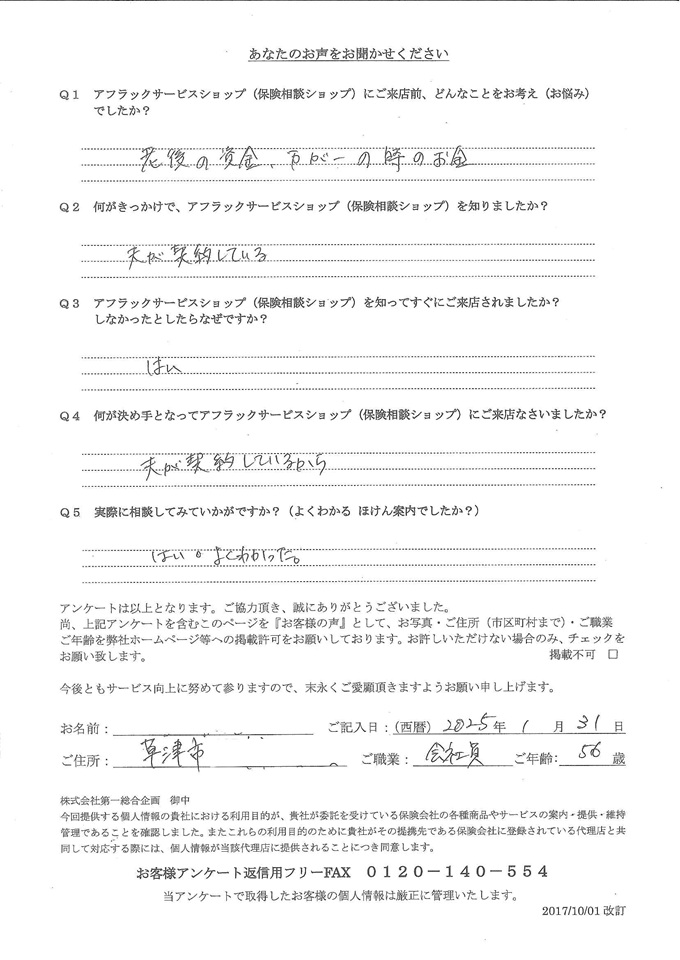 あなたのお声をお聞かせください
Q1 アフラックサービスショップ（保険相談ショップ）にご来店前、どんなことをお考え（お悩み）
でしたか？
老後の資金、万が一の時のお金
Q2 何がきっかけで、アフラックサービスショップ（保険相談ショップ）を知りましたか？
夫が契約している
Q3 アフラックサービスショップ（保険相談ショップ）を知ってすぐにご来店されましたか？
しなかったとしたらなぜですか？
はい
Q4 何が決め手となってアフラックサービスショップ（保険相談ショップ）にご来店なさいましたか？
夫が契約しているから
Q5 実際に相談してみていかがですか？（よくわかる ほけん案内でしたか？）
はい。よくわかった。
アンケートは以上となります。ご協力頂き、誠にありがとうございました。
尚、上記アンケートを含むこのページを『お客様の声』として、お写真・ご住所（市区町村まで）・ご職業
ご年齢を弊社ホームページ等への掲載許可をお願いしております。お許しいただけない場合のみ、チェックを
お願い致します。 掲載不可 □
今後ともサービス向上に努めて参りますので、末永くご愛顧頂きますようお願い申し上げます。
お名前： ご記入日：（西暦）2025年 1 月 31 日
ご住所： 草津市 ご職業： 会社員 ご年齢： 56 歳
株式会社第一総合企画 御中
今回提供する個人情報の貴社における利用目的が、貴社が委託を受けている保険会社の各種商品やサービスの案内・提供・維持
管理であることを確認しました。またこれらの利用目的のために貴社がその提携先である保険会社に登録されている代理店と共
同して対応する際には、個人情報が当該代理店に提供されることにつき同意します。
お客様アンケート返信用フリーFAX 0120－140－554
当アンケートで取得したお客様の個人情報は厳正に管理いたします。
2017/10/01 改訂